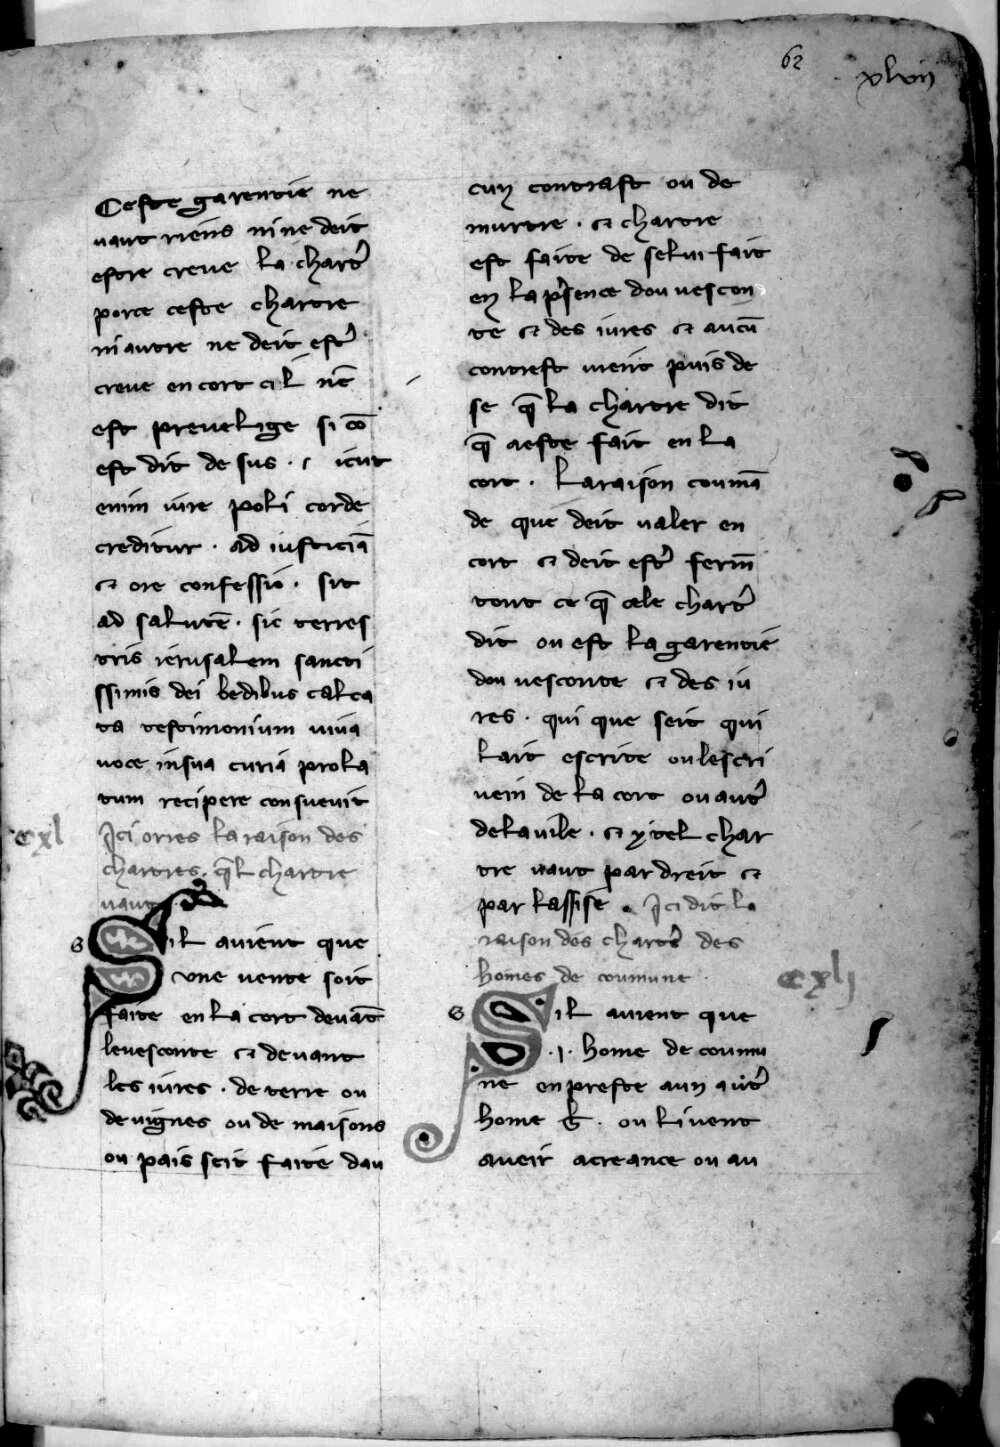 62
xlvij
Ceste garentie ne
vaut riens ni ne deit
estre creue la chart'
porce ceste chartre
ni autre ne deit est'
creue en cort ci l nē
est prevelige si cō
est dit de sus . s icut
enim iure poli corde
creditur . ad iusticiā
⁊ ore confessio . sit
ad salutē . sic terres
tris ierusalem sancti
ssimis dei bedibus calca
ta testimonium viva
voce in sua curia prola
tum recipere consuevit
cxl
Ici orres la raison des
chartres . q̄l chartre
vaut
s
Sil avient que
une vente soit
faite en la cort devāt
le vesconte ⁊ devant
les iures . de terre ou
de vignes ou de maisons
ou pais seit faite dau
cun contrast ou de
murtre . ⁊ chartre
est faite de selui fait
en la p'sence dou vescon
te ⁊ des iures ⁊ aucū
contrest vient puis de
se q̄ la chartre dit
q̄ aeste fait en la
cort . La raison coumā
de que deit valer en
cort ⁊ deit est' ferm̄
tout ce q̄ cele chart'
dit ou est la garentie
dou vesconte ⁊ des iu
res . qui que seit qui
lait escrite ou lescri
vein de la cort ou aut'
de la vile . ⁊ ytel char
tre vaut par dreit ⁊
par lassise . Ici dit la
raison des chart' des
homes de coumune .
cxlj
s
Sil avient que
.j. home de coumu
ne en preste a un aut'
home . ou li vent
aveir a creance ou au